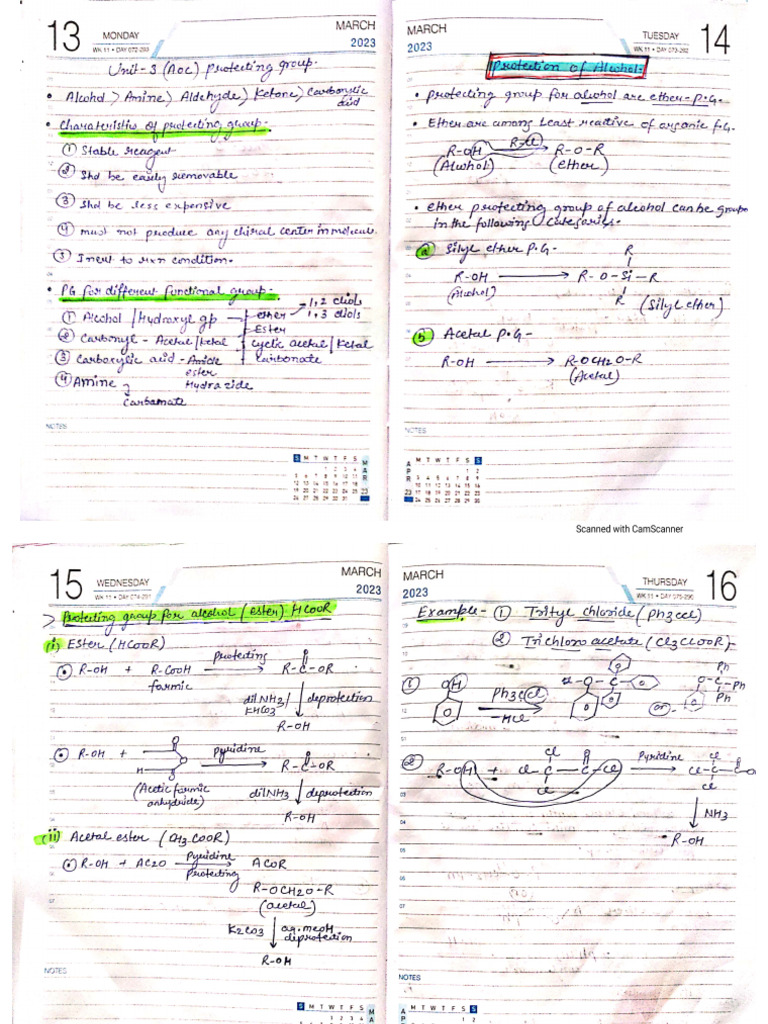 13 MONDAY
WK 11 • DAY 072-293
MARCH
2023
Unit-5 (AOC) protecting group.
• Alcohol > Amine > Aldehyde > Ketone > Carboxylic acid
• Charateristics of protecting group.
① Stable reagent
② Shd be easily removable
③ Shd be less expensive
④ must not produce any chiral center in molecule.
⑤ Inert to rxn condition.
• PG for different functional group.
① Alcohol / Hydroxyl gp
ether → 1,2 diols
1,3 diols
Ester
cyclic acetal / Ketal
Carbonate
② Carbonyl - Acetal / Ketal
③ Carboxylic acid - Amide
ester
Hydrazide
④ Amine
Carbamate
NOTES
S M T W T F S
MAR
23
MARCH
2023
TUESDAY
WK 11 • DAY 073-292
14
Protection of Alcohol.
• protecting group for alcohol are ether-P.G.
• Ether are among least reactive of organic f.G.
R-OH R-Cl R-O-R
(Alcohol) (ether)
• ether protecting group of alcohol can be group
in the following categories.
a) Silyl ether P.G.-
R-OH → R-O-Si-R
R
R
(Alcohol) (Silyl ether)
b) Acetal P.G-
R-OH → R-OCH2O-R
(Acetal)
NOTES
APR
23
S M T W T F S
Scanned with CamScanner
15 WEDNESDAY
WK 11 • DAY 074-291
MARCH
2023
> Protecting group for alcohol (ester) HCOOR
(i) Ester (HCOOR)
• R-OH + R-COOH protecting R-C-OR
O
formic
dil NH3/
KHCO3
deprotection
R-OH
• R-OH + Pyridine R-C-OR
O
O
H
(Acetic formic
anhydride)
dil NH3 deprotection
R-OH
(ii) Acetal ester (CH3COOR)
• R-OH + AC2O Pyridine ACOR
Protecting
R-OCH2O-R
(acetal)
K2CO3 aq. meOH
deprotection
R-OH
NOTES
S M T W T F S
MARCH
2023
THURSDAY
WK 11 • DAY 075-290
16
Example- ① Trityl chloride (Ph3CCl)
② Trichloro acetate (Cl3CCOOR)-
① OH Ph3CCl
-HCl
O-C
or
O-C-Ph
Ph
Ph
② R-OH + Cl-C-C-Cl Pyridine Cl-C-C
Cl
Cl
O
Cl
Cl
NH3
R-OH
NOTES
S M T W T F S